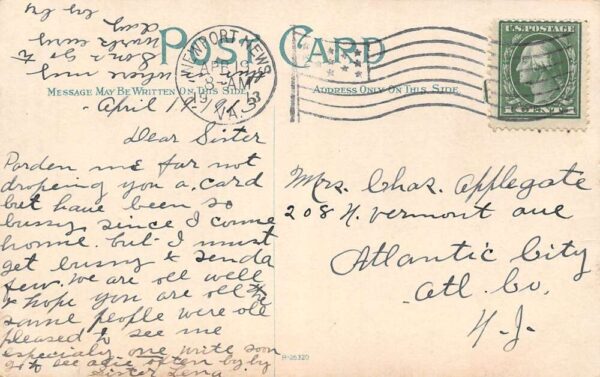 POST CARD
MESSAGE MAY BE WRITTEN ON THIS SIDE
ADDRESS ONLY ON THIS SIDE
NEWPORT NEWS
APR 19
8-AM
VA.
U.S. POSTAGE
1 CENT 1
April 1913
Dear Sister
Parden me for not
droping you a card
but have been so
bussy since I come
home. but I must
get bussy & send a
few. We are all well
& hope you are all the
same people were all
pleased to see me
especialy one write soon
by by
Sister Lena
by by
Mrs. Chas. Applegate
208 N. Vermont ave
Atlantic City
Atl. Co.
N. J.
R-26320